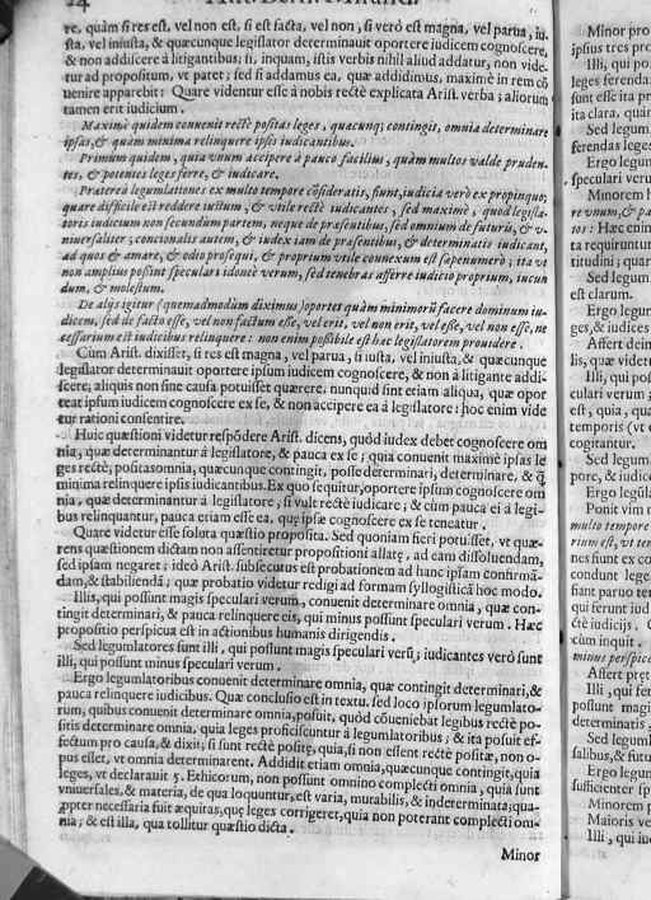 24
re, quàm si res est, vel non est, si est facta, vel non, si verò est magna, vel parua, iu-
sta, vel iniusta, & quæcunque legislator determinavit oportere iudicem cognoscere,
& non addiscere à litigantibus; si, inquam, istis verbis nihil aliud addatur, non vide-
tur ad propositum, vt patet; sed si addamus ea, quæ addidimus, maximè in rem cõ
uenire apparebit: Quare videntur esse à nobis rectè explicata Arist. verba; aliorum
tamen erit iudicium.
Maximè quidem conuenit rectè positas leges, quacunq; contingit, omnia determinare
ipsas, & quam minima relinquere ipsis iudicantibus.
Primum quidem, quia vnum accipere à pauco facilius, quàm multos valde pruden-
tes, & potentes leges ferre, & iudicare.
Præterea legumlationes ex multo tempore cõsideratis, fiunt, iudicia verò ex propinquo;
quare difficile est reddere iustum, & vtile rectè iudicantes, sed maximè, quod legisla-
toris iudicium non secundum partem, neque de præsentibus, sed omnium de futuris, & v-
niuersaliter; concionalis autem, & iudex iam de præsentibus, & determinatis iudicant,
ad quos & amare, & odio prosequi, & proprium vtile connexum est sæpenumerò; ita vt
non amplius possint speculari idoneè verum, sed tenebras afferre iudicio proprium, iucun
dum, & molestum.
De alijs igitur (quemadmodùm diximus) oportet quàm minimorũ facere dominum iu-
dicem, sed de facto esse, vel non factum esse, vel erit, vel non erit, vel esse, vel non esse, ne
cessarium est iudicibus relinquere: non enim possibile est hæc legislatorem prouidere.
Cùm Arist. dixisset, si res est magna, vel parua, si iusta, vel iniusta, & quæcunque
legislator determinauit oportere ipsum iudicem cognoscere, & non à litigante addi-
scere; aliquis non sine causa potuisset quærere; nunquid sint etiam aliqua, quæ opor
teat ipsum iudicem cognoscere ex se, & non accipere ea à legislatore: hoc enim vide
tur rationi consentire.
Huic quæstioni videtur respõdere Arist. dicens, quòd iudex debet cognoscere om
nia, quæ determinantur à legislatore, & pauca ex se; quia conuenit maximè ipsas le
ges rectè, positas omnia, quæcunque contingit, posse determinari, determinare, & q̃
minima relinquere ipsis iudicantibus. Ex quo sequitur, oportere ipsum cognoscere om
nia, quæ determinantur à legislatore, si vult rectè iudicare; & cùm pauca ei à legi-
bus relinquantur, pauca etiam esse ea, quę ipse cognoscere ex se teneatur.
Quare videtur esse soluta quæstio proposita. Sed quoniam fieri potuisset, vt quæ-
rens quæstionem dictam non assentiretur propositioni allatę, ad eam dissoluendam,
sed ipsam negaret; ideò Arist. subsecutus est probationem ad hanc ipsam confirmã-
dam, & stabiliendã; quæ probatio videtur redigi ad formam syllogisticã hoc modo.
Illis, qui possunt magis speculari verum, conuenit determinare omnia, quæ con-
tingit determinari, & pauca relinquere eis, qui minus possunt speculari verum. Hæc
propositio perspicua est in actionibus humanis dirigendis.
Sed legumlatores sunt illi, qui possunt magis speculari verũ; iudicantes verò sunt
illi, qui possunt minus speculari verum.
Ergo legumlatoribus conuenit determinare omnia, quæ contingit determinari, &
pauca relinquere iudicibus. Quæ conclusio est in textu. sed loco ipsorum legumlato-
rum; quibus conuenit determinare omnia, posuit, quòd cõueniebat legibus rectè po-
sitis determinare omnia, quia leges proficiscuntur à legumlatoribus; & ita posuit ef-
fectum pro causa, & dixit; si sunt rectè positę, quia, si non essent rectè positæ, non o-
pus esset, vt omnia determinarent. Addidit etiam omnia, quæcunque contingit, quia
leges, vt declarauit 5. Ethicorum, non possunt omnino complecti omnia, quia sunt
vniuersales, & materia, de qua loquuntur, est varia, mutabilis, & indeterminata; qua-
ppter necessaria fuit æquitas, quę leges corrigeret, quia non poterant complecti om-
nia; & est illa, qua tollitur quæstio dicta.
Minor
Minor pro
ipsius tres pro
Illi, qui po
leges ferenda
sunt esse ita pr
ita clara, quàm
Sed legum
ferendas leges
Ergo legum
speculari veru
Minorem h
re vnum, & pa
tos: Hæc enim
ta requiruntur
titudini; quar
Sed legum
est clarum.
Ergo legum
ges, & iudices
Affert dein
lis, quæ videt
Illi, qui pos
culari verum;
est, quia, qua
temporis (vt
cogitantur.
Sed legum
pore, & iudic
Ergo legũla
Ponit vim
multo tempore
rium est, vt ten
nes fiunt ex co
condunt lege
fiant paruo te
qui ferunt iud
ctè iudicijs.
cùm inquit.
minus perspicu
Affert pręt
Illi, qui fe
possunt magi
determinatis
Sed legum
salibus, & futu
Ergo legum
sufficienter sp
Minorem p
Maioris ve
Illi, qui iu